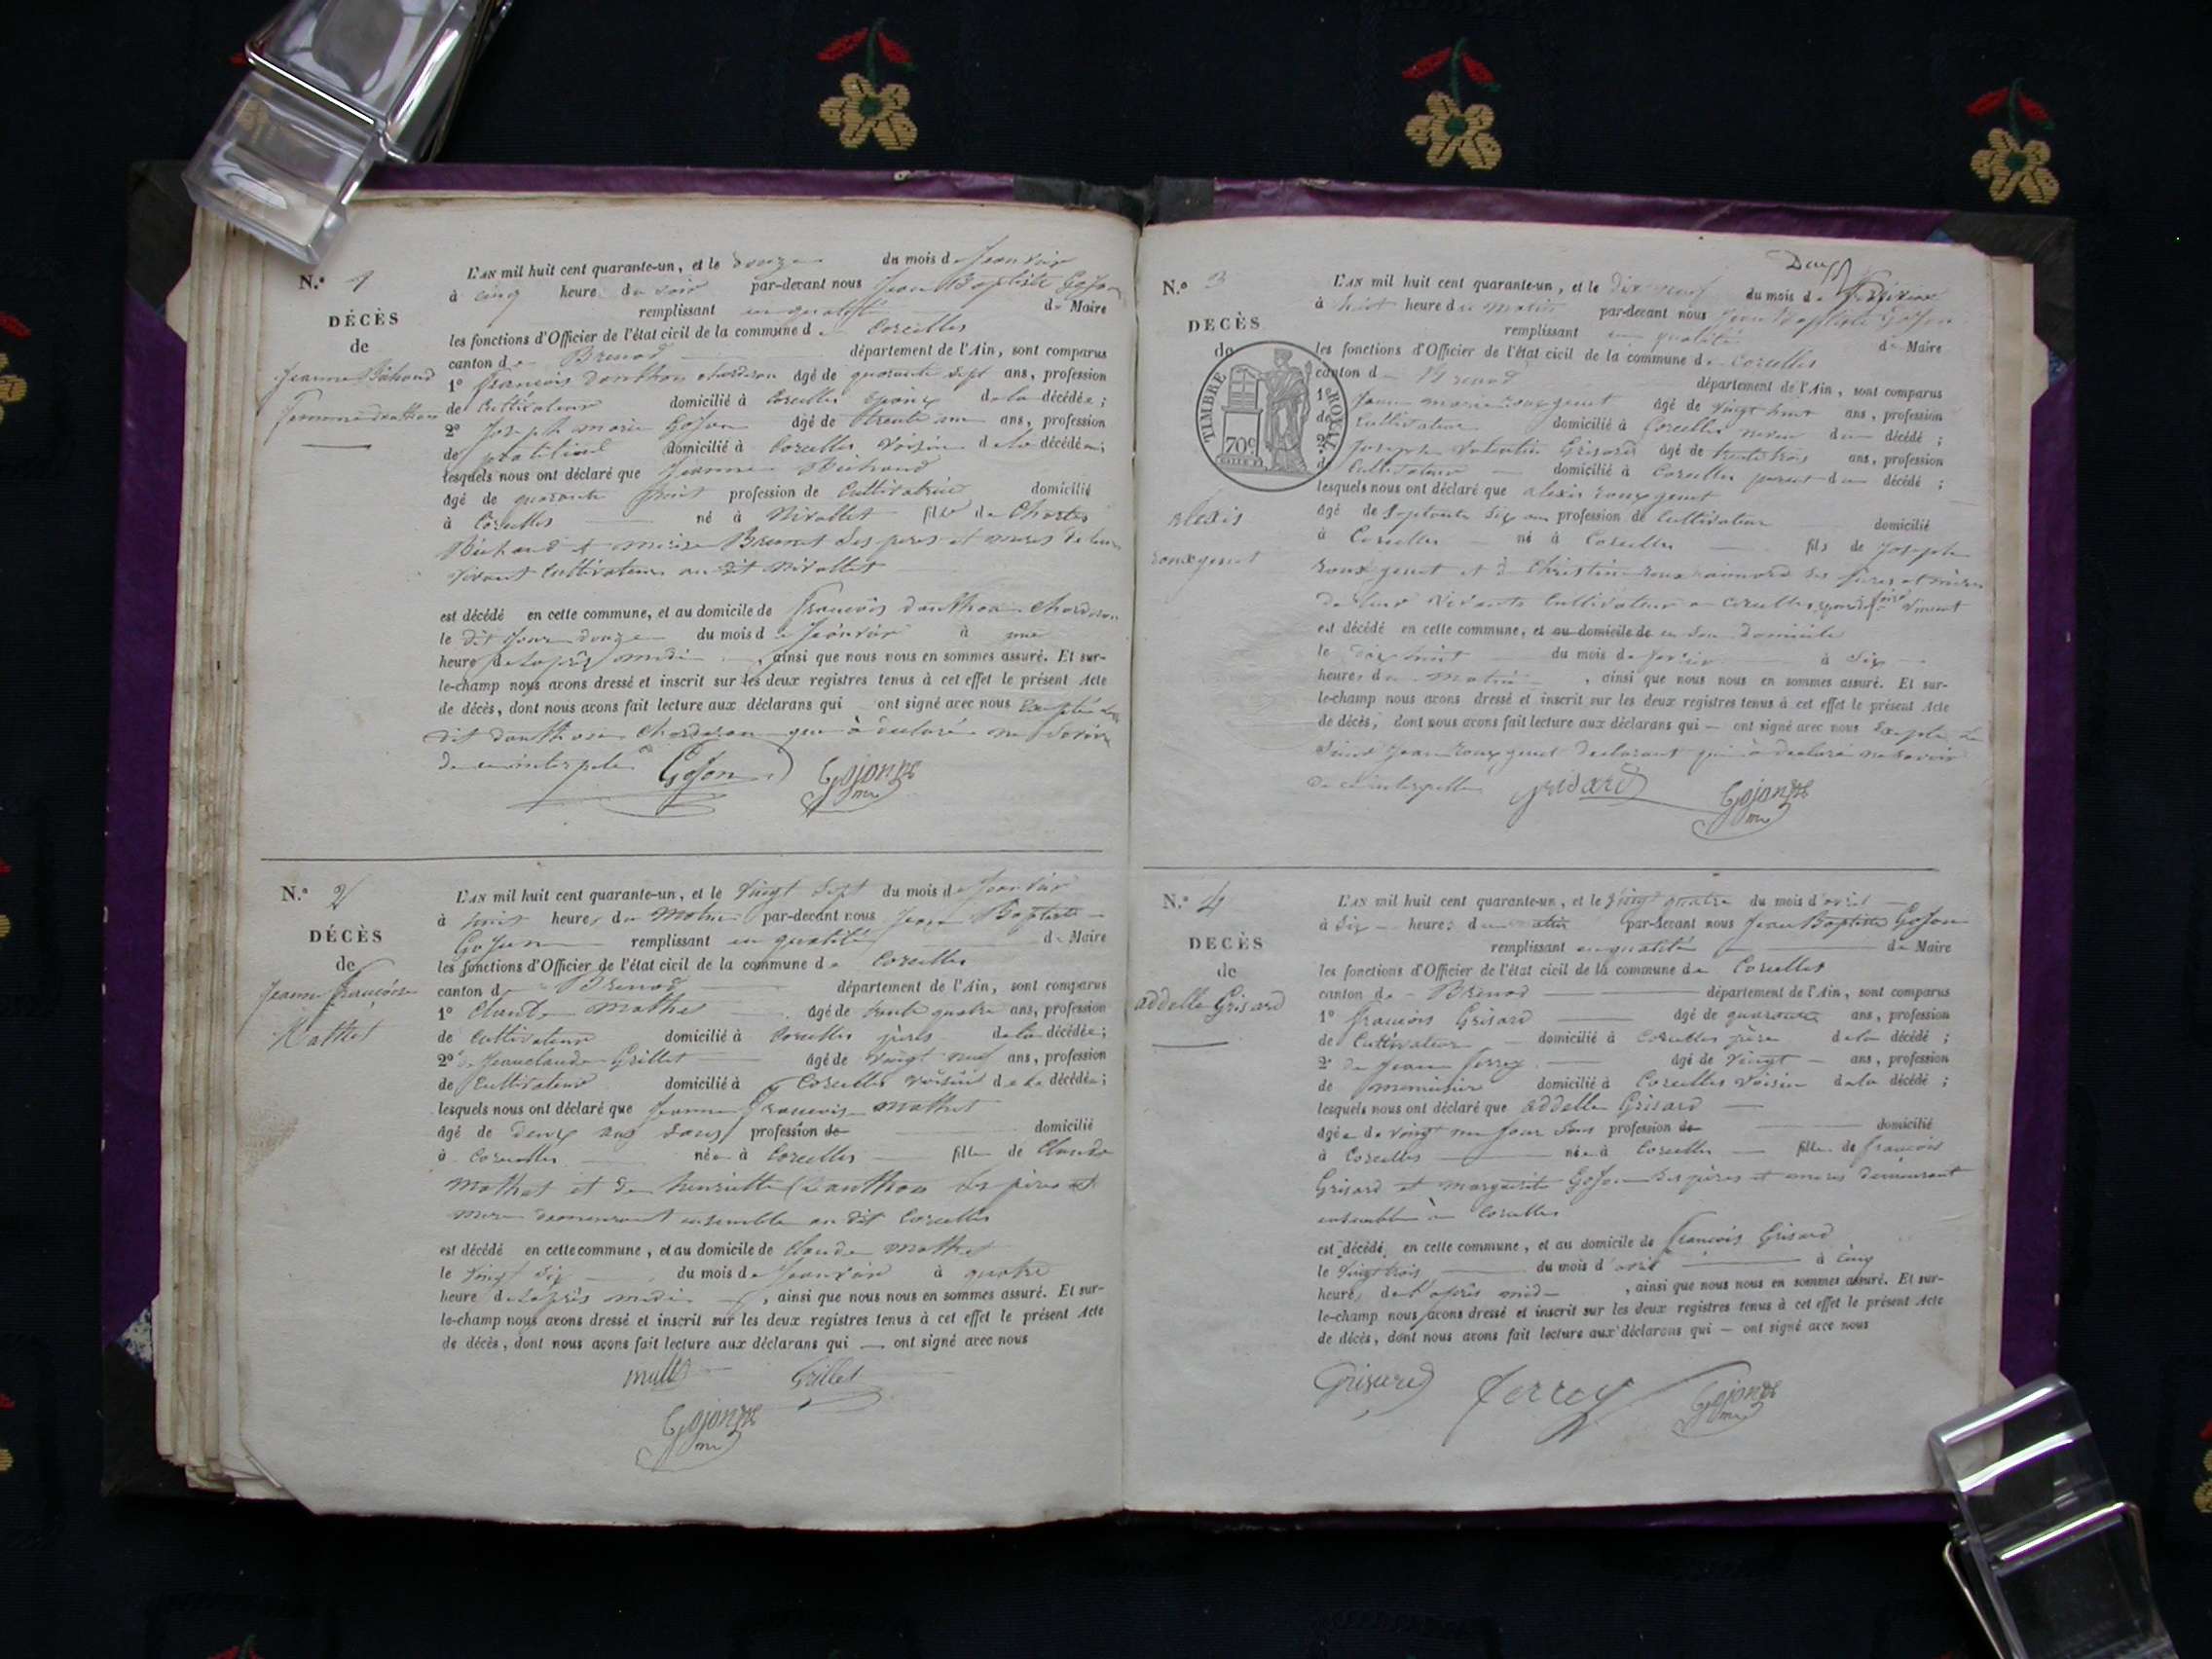 N.º 1
DÉCÈS
de
Jeanne Bichand
femme donthon
L'AN mil huit cent quarante-un, et le douze du mois de Janvier
à cinq heure du soir par-devant nous Jean Baptiste Gojon
remplissant en qualité de Maire
les fonctions d'Officier de l'état civil de la commune de Corcelles
canton de Brenod département de l'Ain, sont comparus
1º François donthon chardron âgé de quarante sept ans, profession
de Cultivateur domicilié à Corcelles époux de la décédée ;
2º Joseph marie Gojon âgé de trente un ans, profession
de domicilié à Corcelles voisin de la décédée ;
lesquels nous ont déclaré que Jeanne Bichand
âgé de quarante huit profession de Cultivatrice domicilié
à Corcelles né à Nivollet fille de Charles
Bichand et Brunet des peres et meres de leur
vivant Cultivateurs au dit Nivollet
est décédé en cette commune, et au domicile de François donthon chardron
le dit jour douze du mois de Janvier à une
heure de l'après midi, ainsi que nous nous en sommes assuré. Et sur-
le-champ nous avons dressé et inscrit sur les deux registres tenus à cet effet le présent Acte
de décès, dont nous avons fait lecture aux déclarans qui ont signé avec nous Excepté le
dit donthon Chardron qui à déclaré ne savoir
de ce interpelé Gojon Gojon
N.º 2
DÉCÈS
de
Jeanne françoise
Mathet
L'AN mil huit cent quarante-un, et le vingt sept du mois de Janvier
à huit heures du Matin par-devant nous Jean Baptiste
Gojon remplissant en qualité de Maire
les fonctions d'Officier de l'état civil de la commune de Corcelles
canton de Brenod département de l'Ain, sont comparus
1º Claude Mathet âgé de trente quatre ans, profession
de Cultivateur domicilié à Corcelles père de la décédée ;
2º de Jeanclaude Grillet âgé de vingt neuf ans, profession
de Cultivateur domicilié à Corcelles voisin de la décédée ;
lesquels nous ont déclaré que Jeanne François Mathet
âgé de deux ans sans profession de domicilié
à Corcelles née à Corcelles fille de Claude
Mathet et de henriette donthon des pères et
mere demeurant ensemble au dit Corcelles
est décédé en cette commune, et au domicile de Claude Mathet
le vingt six du mois de Janvier à quatre
heure de l'après midi, ainsi que nous nous en sommes assuré. Et sur-
le-champ nous avons dressé et inscrit sur les deux registres tenus à cet effet le présent Acte
de décès, dont nous avons fait lecture aux déclarans qui — ont signé avec nous
Grillet
Gojon
Deux
N.º 3
DECÈS
de
TIMBRE ROYAL
70c
alexis
rouxgenet
L'AN mil huit cent quarante-un, et le dix neuf du mois de février
à huit heure du matin par-devant nous Jean Baptiste Gojon
remplissant en qualité de Maire
les fonctions d'Officier de l'état civil de la commune de Corcelles
canton de Brenod département de l'Ain, sont comparus
1º Jean marie rouxgenet âgé de vingt huit ans, profession
de Cultivateur domicilié à Corcelles neveu du décédé ;
2º Joseph valentin Grisard âgé de trente trois ans, profession
de Cultivateur domicilié à Corcelles parent du décédé ;
lesquels nous ont déclaré que alexis rouxgenet
âgé de septante six ans profession de Cultivateur domicilié
à Corcelles né à Corcelles fils de Joseph
rouxgenet et de Christine roux des pères et mères
de leur vivants Cultivateur a corcelles
est décédé en cette commune, et au domicile de en son domicile
le dix huit du mois de fevrier à six
heures du matin, ainsi que nous nous en sommes assuré. Et sur-
le-champ nous avons dressé et inscrit sur les deux registres tenus à cet effet le présent Acte
de décès, dont nous avons fait lecture aux déclarans qui — ont signé avec nous Excepté le
Jean rouxgenet declarant qui à déclaré ne savoir
de ce interpelle Grisard Gojon
N.º 4
DECÈS
de
addelle Grisard
L'AN mil huit cent quarante-un, et le vingt quatre du mois d'avril
à six heures du matin par-devant nous Jean Baptiste Gojon
remplissant en qualité de Maire
les fonctions d'Officier de l'état civil de la commune de Corcelles
canton de Brenod département de l'Ain, sont comparus
1º François Grisard âgé de quarante ans, profession
de Cultivateur domicilié à Corcelles père de la décédé ;
2º de Jean ferrey âgé de vingt ans, profession
de menuisier domicilié à Corcelles voisin de la décédé ;
lesquels nous ont déclaré que addelle Grisard
âgée de vingt un jour sans profession de domicilié
à Corcelles née à Corcelles fille de François
Grisard et marguerite Gojon des pères et meres demeurant
ensemble à Corcelles
est décédé en cette commune, et au domicile de François Grisard
le vingt trois du mois d'avril à cinq
heures de l'après midi, ainsi que nous nous en sommes assuré. Et sur-
le-champ nous avons dressé et inscrit sur les deux registres tenus à cet effet le présent Acte
de décès, dont nous avons fait lecture aux déclarans qui — ont signé avec nous
Grisard ferrey Gojon